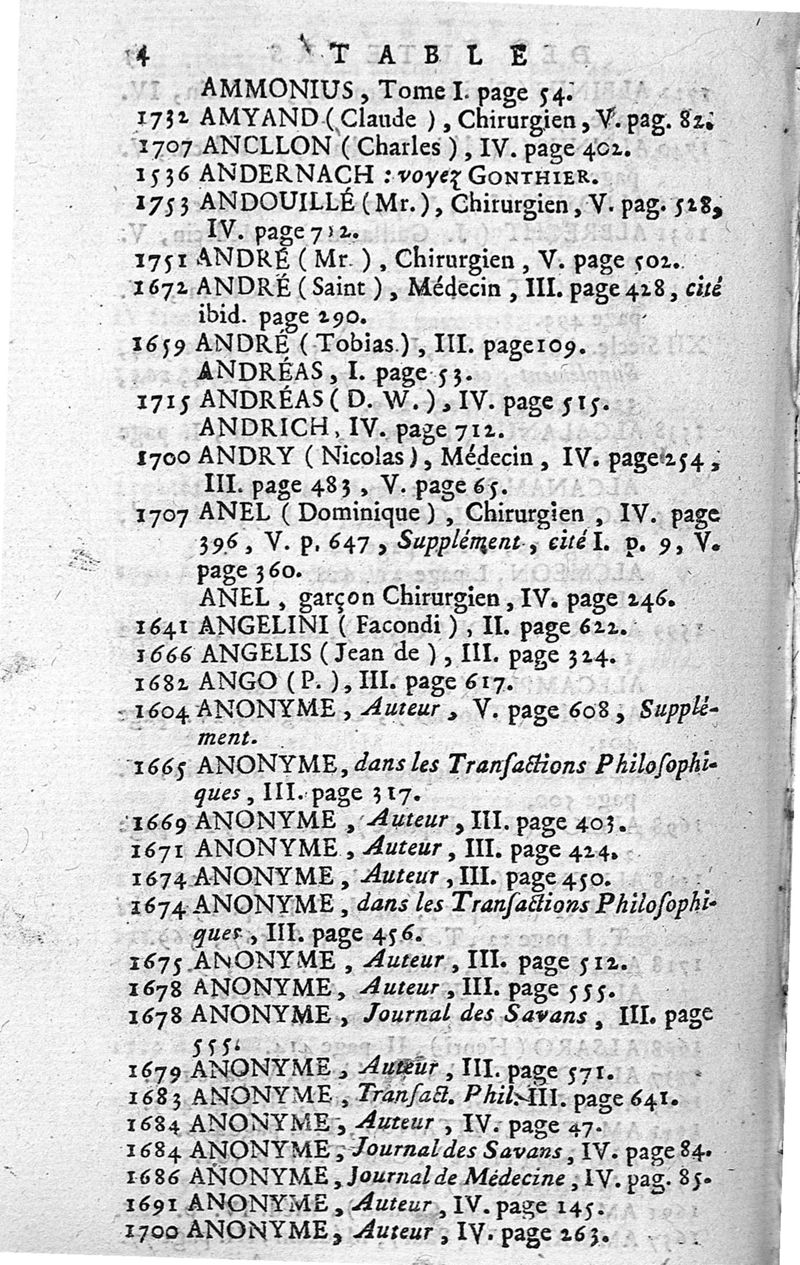 4 TABLE
AMMONIUS, Tome I. page 54.
1732 AMYAND (Claude ), Chirurgien, V. pag. 82.
1707 ANCLLON ( Charles ), IV. page 402.
1536 ANDERNACH : voyez GONTHIER.
1753 ANDOUILLÉ (Mr.), Chirurgien, V. pag. 528,
IV. page 712.
1751 ANDRÉ ( Mr. ), Chirurgien, V. page 502.
1672 ANDRÉ ( Saint ), Médecin, III. page 428, cité
ibid. page 290.
1659 ANDRÉ (Tobias), III. page 109.
ANDRÉAS, I. page 53.
1715 ANDRÉAS ( D. W. ), IV. page 515.
ANDRICH, IV. page 712.
1700 ANDRY ( Nicolas), Médecin, IV. page 254,
III. page 483, V. page 65.
1707 ANEL ( Dominique ), Chirurgien, IV. page
396, V. p. 647, Supplément, cité I. p. 9, V.
page 360.
ANEL, garçon Chirurgien, IV. page 246.
1641 ANGELINI ( Facondi ), II. page 622.
1666 ANGELIS (Jean de ), III. page 324.
1682 ANGO (P. ), III. page 617.
1604 ANONYME, Auteur, V. page 608, Supplé-
ment.
1665 ANONYME, dans les Tranſactions Philoſophi-
ques, III. page 317.
1669 ANONYME, Auteur, III. page 403.
1671 ANONYME, Auteur, III. page 424.
1674 ANONYME, Auteur, III. page 450.
1674 ANONYME, dans les Tranſactions Philoſophi-
ques, III. page 456.
1675 ANONYME, Auteur, III. page 512.
1678 ANONYME, Auteur, III. page 555.
1678 ANONYME, Journal des Savans, III. page
555.
1679 ANONYME, Auteur, III. page 571.
1683 ANONYME, Tranſact. Phil. III. page 641.
1684 ANONYME, Auteur, IV. page 47.
1684 ANONYME, Journal des Savans, IV. page 84.
1686 ANONYME, Journal de Médecine, IV. pag. 85.
1691 ANONYME, Auteur, IV. page 145.
1700 ANONYME, Auteur, IV. page 263.